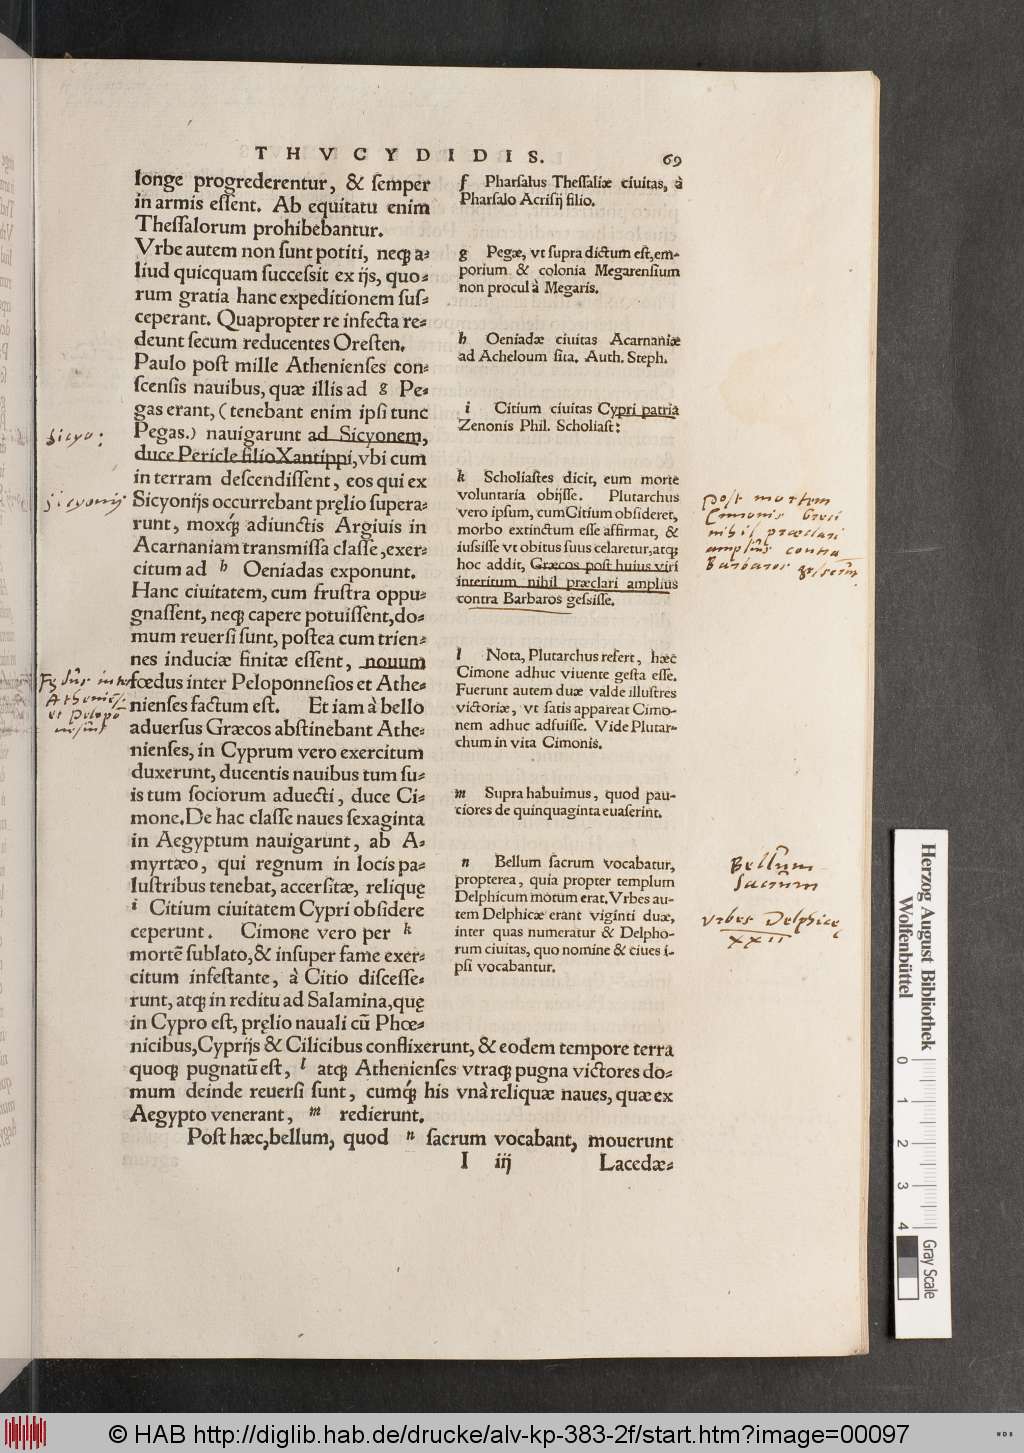 THVCYDIDIS. 69
longe progrederentur, & ſemper
in armis eſſent. Ab equitatu enim
Theſſalorum prohibebantur.
Vrbe autem non ſunt potiti, neq́; a⸗
liud quicquam ſucceſſit ex ijs, quo⸗
rum gratia hanc expeditionem ſuſ⸗
ceperant. Quapropter re infecta re⸗
deunt ſecum reducentes Oreſten.
Paulo poſt mille Athenienſes con⸗
ſcenſis nauibus, quæ illis ad g Pe⸗
gas erant, (tenebant enim ipſi tunc
Pegas.) nauigarunt ad Sicyonem,
duce Pericle filio Xantippi, vbi cum
in terram deſcendiſſent, eos qui ex
Sicyonijs occurrebant pręlio ſupera⸗
runt, moxq́; adiunctis Argiuis in
Acarnaniam tranſmiſſa claſſe, exer⸗
citum ad h Oeniadas exponunt.
Hanc ciuitatem, cum fruſtra oppu⸗
gnaſſent, neq; capere potuiſſent, do⸗
mum reuerſi ſunt, poſtea cum trien⸗
nes induciæ finitæ eſſent, nouum
fœdus inter Peloponneſios et Athe⸗
nienſes factum eſt. Et iam à bello
aduerſus Græcos abſtinebant Athe⸗
nienſes, in Cyprum vero exercitum
duxerunt, ducentis nauibus tum ſu⸗
is tum ſociorum aduecti, duce Ci⸗
mone. De hac claſſe naues ſexaginta
in Aegyptum nauigarunt, ab A⸗
myrtæo, qui regnum in locis pa⸗
luſtribus tenebat, accerſitæ, relique̜
i Citium ciuitatem Cypri obſidere
ceperunt. Cimone vero per k
mortē ſublato, & inſuper fame exer⸗
citum infeſtante, à Citio diſceſſe⸗
runt, atq; in reditu ad Salamina, que̜
in Cypro eſt, pręlio nauali cū Phœ⸗
nicibus, Cyprijs & Cilicibus conflixerunt, & eodem tempore terra
quoq; pugnatū eſt, l atq; Athenienſes vtraq; pugna victores do⸗
mum deinde reuerſi ſunt, cumq́; his vnà reliquæ naues, quæ ex
Aegypto venerant, m redierunt.
Poſt hæc, bellum, quod n ſacrum vocabant, mouerunt
I iij Lacedæ⸗
f Pharſalus Theſſaliæ ciuitas, à
Pharſalo Acriſij filio.
g Pegæ, vt ſupra dictum eſt, em-
porium & colonia Megarenſium
non procul à Megaris.
h Oeniadæ ciuitas Acarnaniæ
ad Acheloum ſita. Auth. Steph.
i Citium ciuitas Cypri patria
Zenonis Phil. Scholiaſt:
k Scholiaſtes dicit, eum morte
voluntaria obijſſe. Plutarchus
vero ipſum, cum Citium obſideret,
morbo extinctum eſſe affirmat, &
iuſsiſſe vt obitus ſuus celaretur, atq;
hoc addit, Græcos poſt huius viri
interitum nihil præclari amplius
contra Barbaros geſsiſſe.
l Nota, Plutarchus refert, hæc
Cimone adhuc viuente geſta eſſe.
Fuerunt autem duæ valde illuſtres
victoriæ, vt ſatis appareat Cimo-
nem adhuc adfuiſſe. Vide Plutar-
chum in vita Cimonis.
m Supra habuimus, quod pau-
ciores de quinquaginta euaſerint.
n Bellum ſacrum vocabatur,
propterea, quia propter templum
Delphicum motum erat. Vrbes au-
tem Delphicæ erant viginti duæ,
inter quas numeratur & Delpho-
rum ciuitas, quo nomine & ciues i-
pſi vocabantur.
Sicyo:
Sicyonij
inter
Athenieſ-
et Pelopō
post mortem
Cimonis Greci
nihil præclari
amplius contra
Barbaros
Bellum
sacrum
Vrbes Delphicę
XXII
Herzog August Bibliothek
Wolfenbüttel
0 1 2 3 4
Gray Scale
© HAB http://diglib.hab.de/drucke/alv-kp-383-2f/start.htm?image=00097